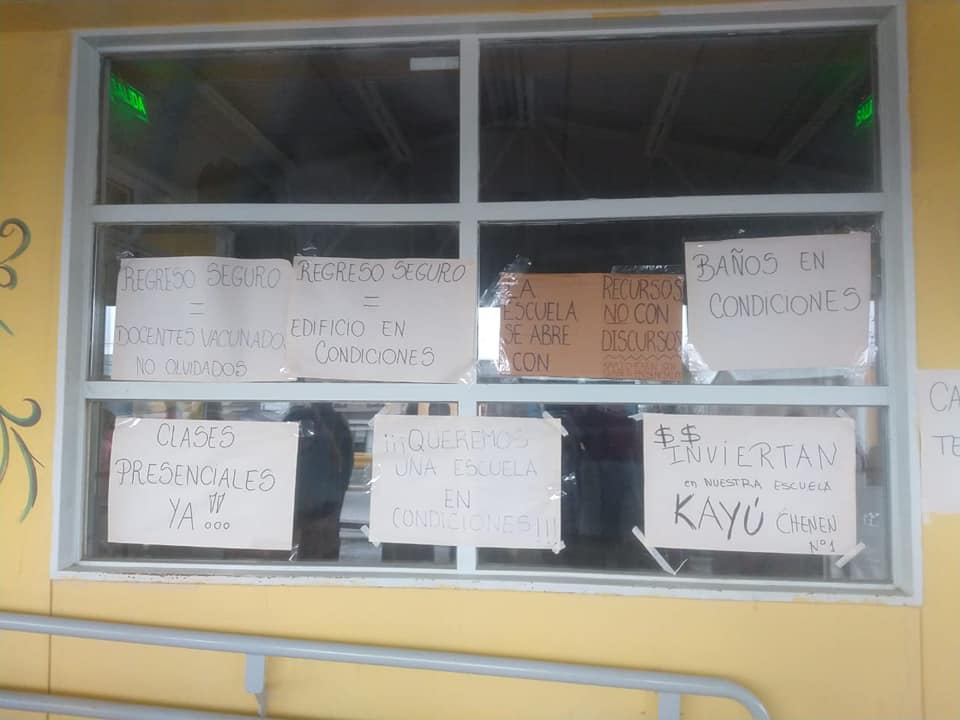 SALIDA
REGRESO SEGURO
=
DOCENTES VACUNADOS
NO OLVIDADOS
REGRESO SEGURO
=
EDIFICIO EN
CONDICIONES
LA
ESCUELA
SE ABRE
CON
RECURSOS
NO CON
DISCURSOS
BAÑOS EN
CONDICIONES
CLASES
PRESENCIALES
YA !!...
¡¡¡QUEREMOS
UNA ESCUELA
EN
CONDICIONES!!!
$ $
INVIERTAN
en NUESTRA ESCUELA
KAYÚ CHENEN
Nº1
CA
TE